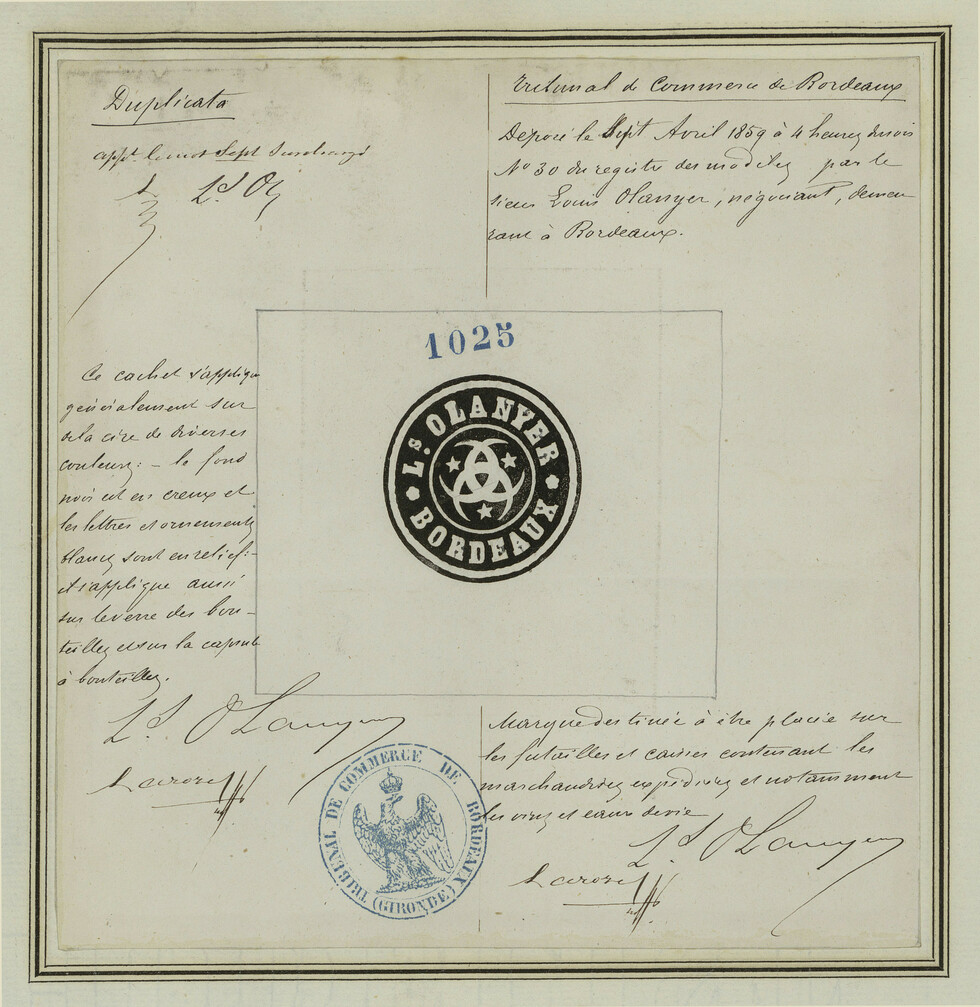 Duplicata
appt. le mot Sept surchargé
Ls Oly
Tribunal de Commerce de Bordeaux
Déposé le Sept Avril 1859 à 4 heures du soir
No 30 du registre des modèles par le
sieur Louis Olanyer, négociant, demeu
rant à Bordeaux.
1025
Ls OLANYER
BORDEAUX
Ce cachet s'applique
généralement sur
de la cire de diverses
couleurs: - le fond
noir est en creux et
les lettres et ornements
blancs sont en relief:-
il s'applique aussi
sur le verre des bou-
teilles et sur la capsule
à bouteilles.
Ls Olanyer
Laroze
TRIBUNAL DE COMMERCE DE BORDEAUX
(GIRONDE)
Marque destinée à être placée sur
les futailles et caisses contenant les
marchandises expédiées et notamment
les vins et eaux de vie
Ls Olanyer
Laroze